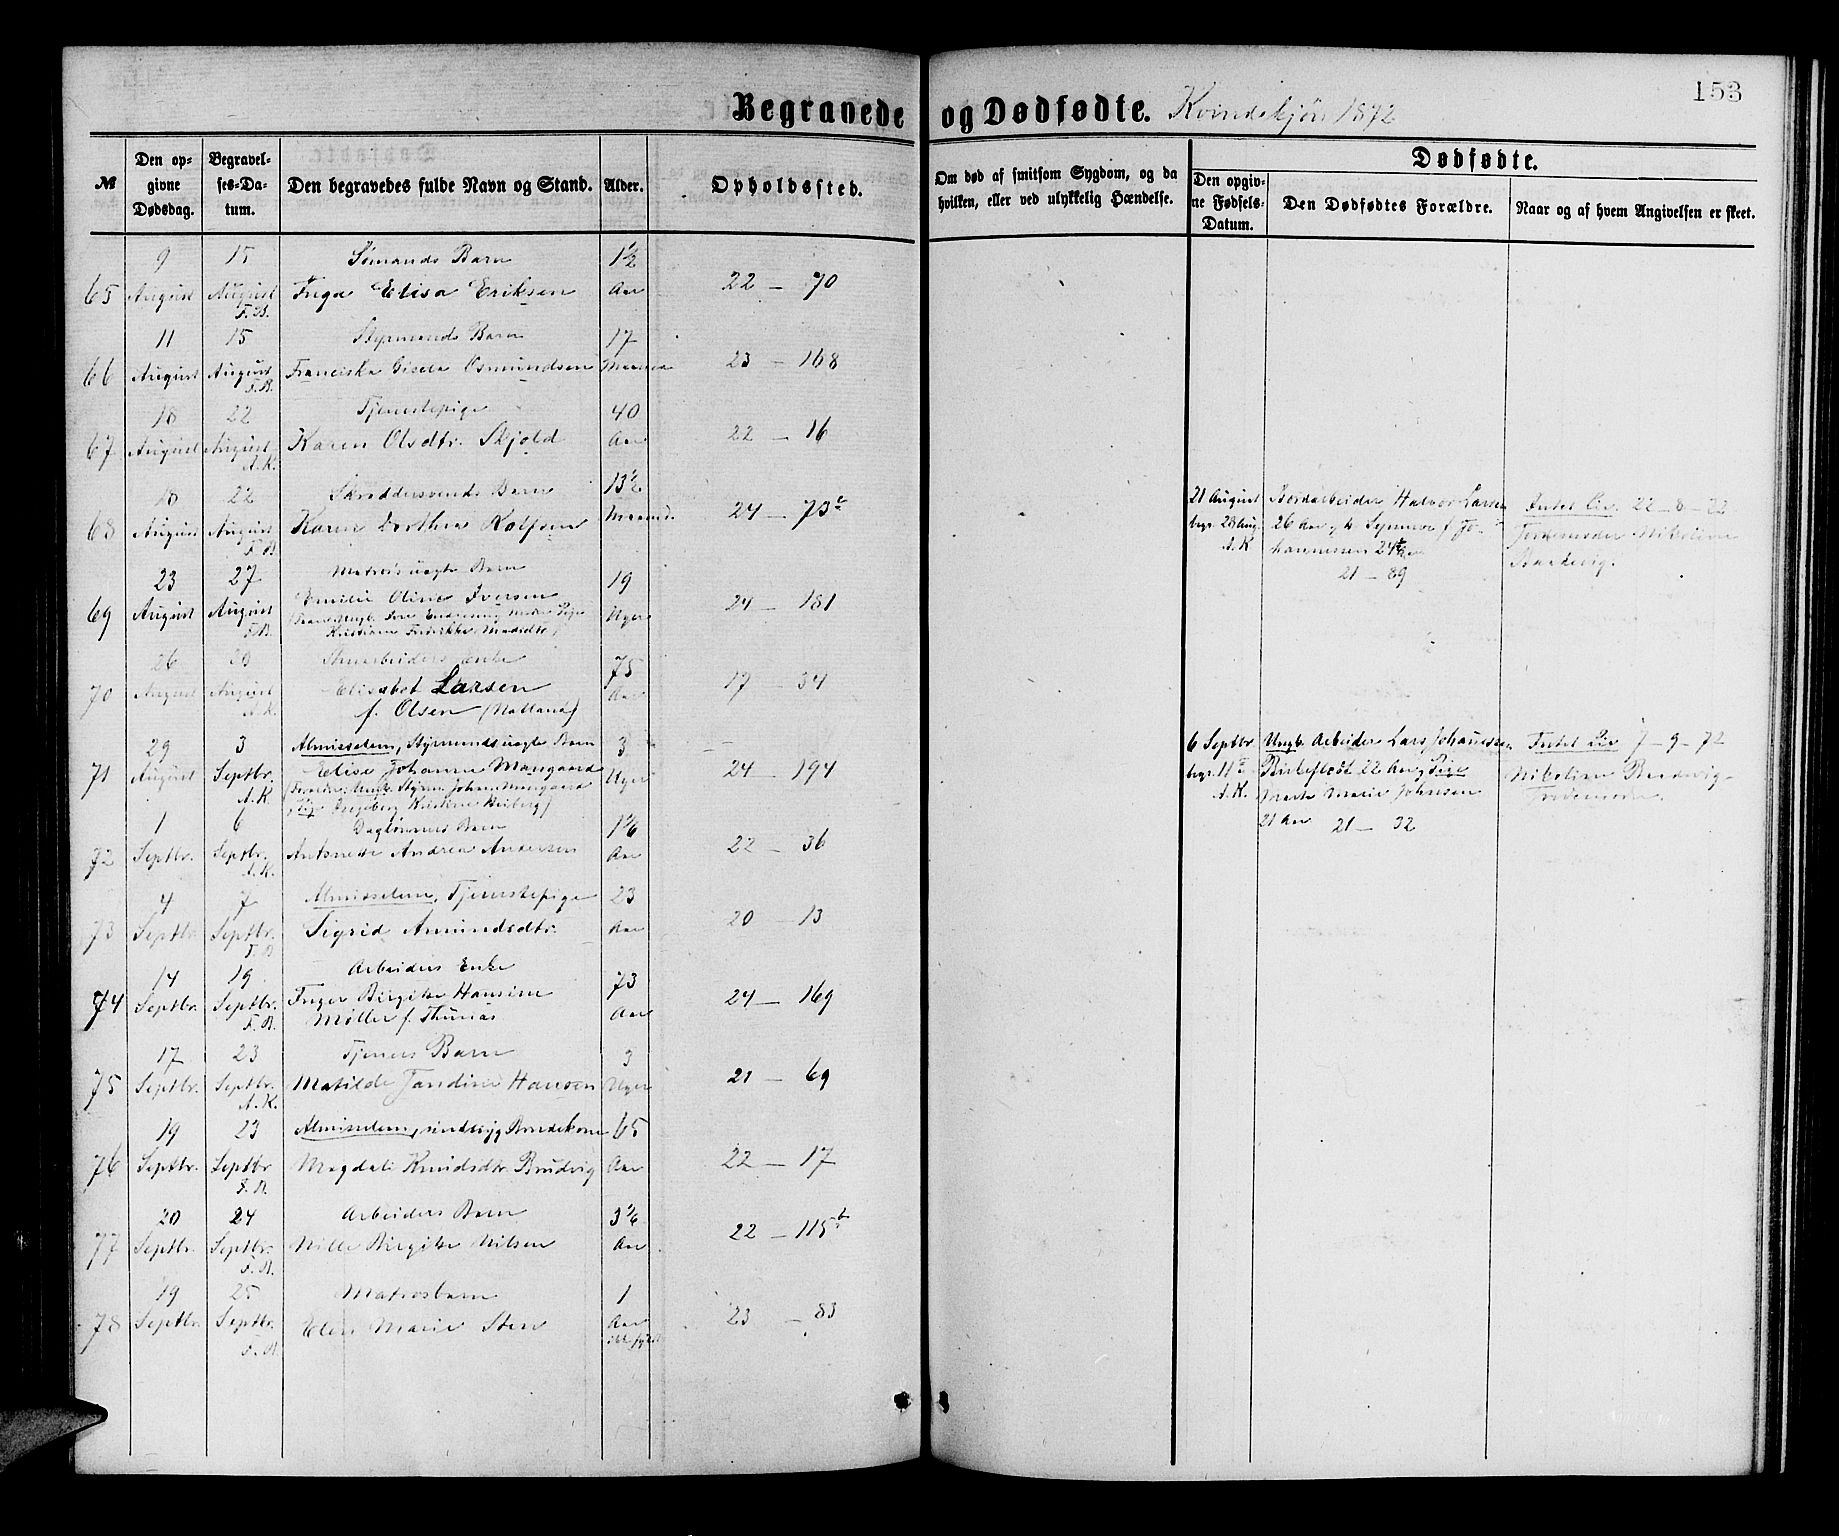 153
Begravede og Dødfødte. Kvindekjøn 1872
№
Den opgivne Dødsdag.
Begravelses-Datum.
Den begravedes fulde Navn og Stand.
Alder.
Opholdssted.
Om død af smitsom Sygdom, og da hvilken, eller ved ulykkelig Hændelse.
Dødfødte.
Den opgivne Fødsels-Datum.
Den Dødfødtes Forældre.
Naar og af hvem Angivelsen er skeet.
9 15 Sømands Barn 1½
65 August August Inga Elisa Eriksen Aar 22 – 70
F.B.
11 15 Styrmands Barn 17
66 August August Franciska Gisela Osmundsen Maaneder 23 – 168
F.B.
18 22 Tjenestepige 40
67 August August Karen Olsdtr. Skjold Aar 22 – 16
A.K.
18 22 Skræddersvends Barn 13½
68 August August Karen Dorthea Rolfsen Maaned. 24 – 73
F.B.
23 27 Matros Barn 19
69 August August Emilie Oline Iversen Uger 24 – 181
F.B.
Kristiane Fredrikke
26 August August Enke 75
70 Elisabet Larsen Aar 17 – 34
A.K. f. Olsen
29 3 Almisselem, Styrmands uægte Barn 3
71 August Septbr. Elise Johanne Mangaard Uger 24 – 194
A.K. Ingeborg Kristine
1 6 Daglønners Barn 1⅙
72 Septbr. Septbr. Antonette Andrea Andersen Aar 22 – 36
A.K.
4 7 Almisselem, Tjenestepige 23
73 Septbr. Septbr. Sigrid Amundsdtr. Aar 20 – 13
F.B.
14 19 Arbeiders Enke 73
74 Septbr. Septbr. Inger Birgitte Hansine Aar 24 – 169
F.B. Møller f. Thomas
17 23 Tjeners Barn 3
75 Septbr. Septbr. Matilde Tandine Hansen Uger 21 – 69
A.K.
19 23 Almisselem, sindssyg Bondekone 65
76 Septbr. Septbr Magdali Knudsdtr. Brudvig Aar 22 – 17
F.B.
20 24 Arbeiders Barn 3⅙
77 Septbr. Septbr. Nille Birgitte Nilsen Aar 22 – 115 b
F.B.
19 25 Matrosbarn 1
78 Septbr. Septbr. Elen Marie Sten Aar 23 – 83
F.B.
21 August Bordarbeider Halvor Larsen Intet Liv. 22–8–72
begr. 28 Aug. 26 Aar Jo-
A.K. hannessen 24 Aar Nikoline
21 – 89
6 Septbr. Ungk. Arbeider Lars Johannessen Intet Liv 7–9–72
begr. 11 22 Aar, Pige Nikoline
A.K. Marie Johnsen Jordemoder.
21 Aar 21 – 32